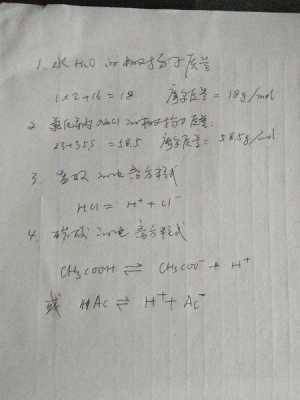 1. 水 H₂O 的相对分子质量
1×2+16=18 摩尔质量=18g/mol
2. 氯化钠 NaCl 的相对分子质量:
23+35.5=58.5 摩尔质量=58.5g/mol
3. 盐酸的电离方程式
HCl = H⁺ + Cl⁻
4. 醋酸的电离方程式
CH₃COOH ⇌ CH₃COO⁻ + H⁺
或 HAc ⇌ H⁺ + Ac⁻